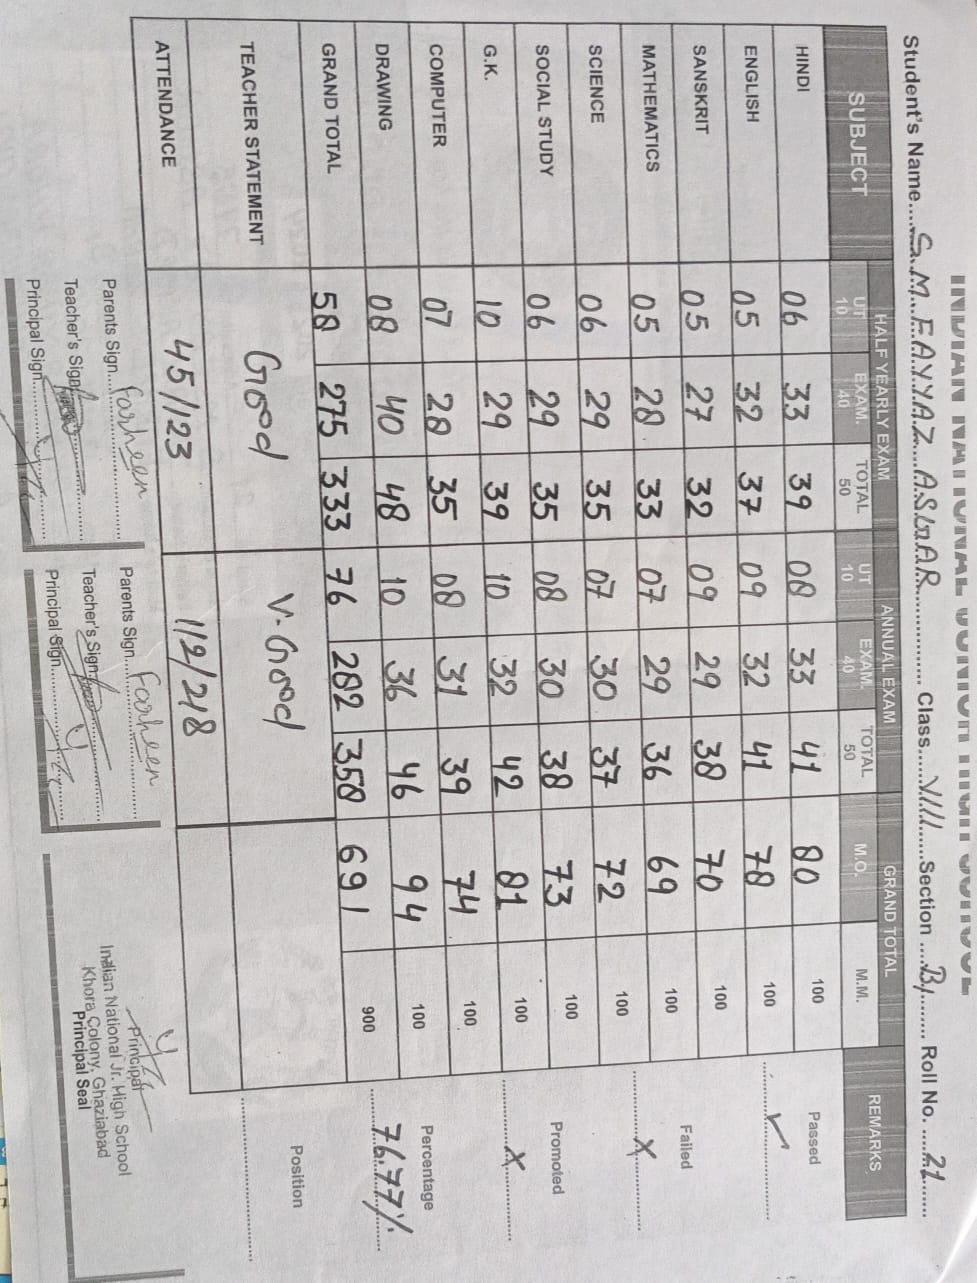 INDIAN NATIONAL JUNIOR HIGH SCHOOL
Student's Name....S.M FAYYAZ ASGAR.... Class....VIII....Section ....B.... Roll No. ....21....
SUBJECT HALF YEARLY EXAM ANNUAL EXAM GRAND TOTAL REMARKS
UT 10 EXAM. 40 TOTAL 50 UT 10 EXAM. 40 TOTAL 50 M.O. M.M.
HINDI 06 33 39 08 33 41 80 100 Passed
ENGLISH 05 32 37 09 32 41 78 100 ✓
SANSKRIT 05 27 32 09 29 38 70 100 Failed
MATHEMATICS 05 28 33 07 29 36 69 100 X
SCIENCE 06 29 35 07 30 37 72 100
SOCIAL STUDY 06 29 35 08 30 38 73 100 Promoted
G.K. 10 29 39 10 32 42 81 100 X
COMPUTER 07 28 35 08 31 39 74 100
DRAWING 08 40 48 10 36 46 94 100 Percentage
GRAND TOTAL 58 275 333 76 282 358 691 900 76.77%
TEACHER STATEMENT Good V. Good Position
ATTENDANCE 45/123 112/218
Parents Sign....Farheen.... Parents Sign....Farheen....
Teacher's Sign.... Teacher's Sign....
Principal Sign.... Principal Sign....
Principal
Indian National Jr. High School
Khora Colony, Ghaziabad
Principal Seal